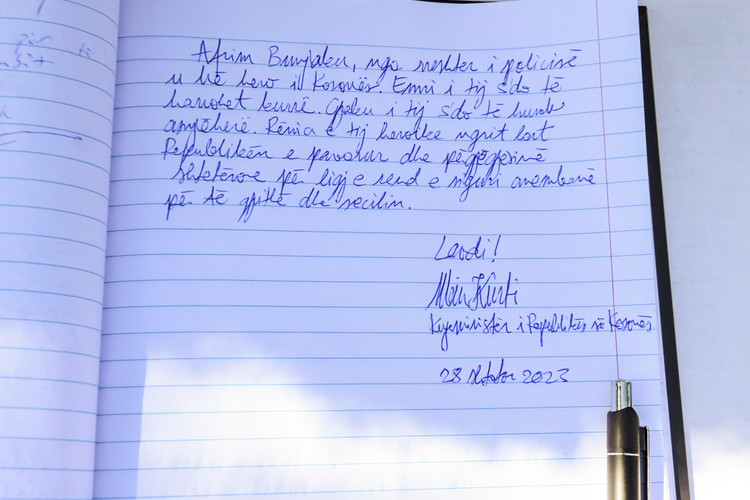 për të
Afrim Bunjaku, nga rreshter i policisë
u bë hero i Kosovës. Emri i tij s'do të
harrohet kurrë. Gjaku i tij s'do të humb
asnjëherë. Rënia e tij heroike ngrit lart
Republikën e pavarur dhe përgjegjësinë
shtetërore për ligj e rend e siguri anembanë
për të gjithë dhe secilin.
Lavdi!
Albin Kurti
Kryeministër i Republikës së Kosovës
28 tetor 2023